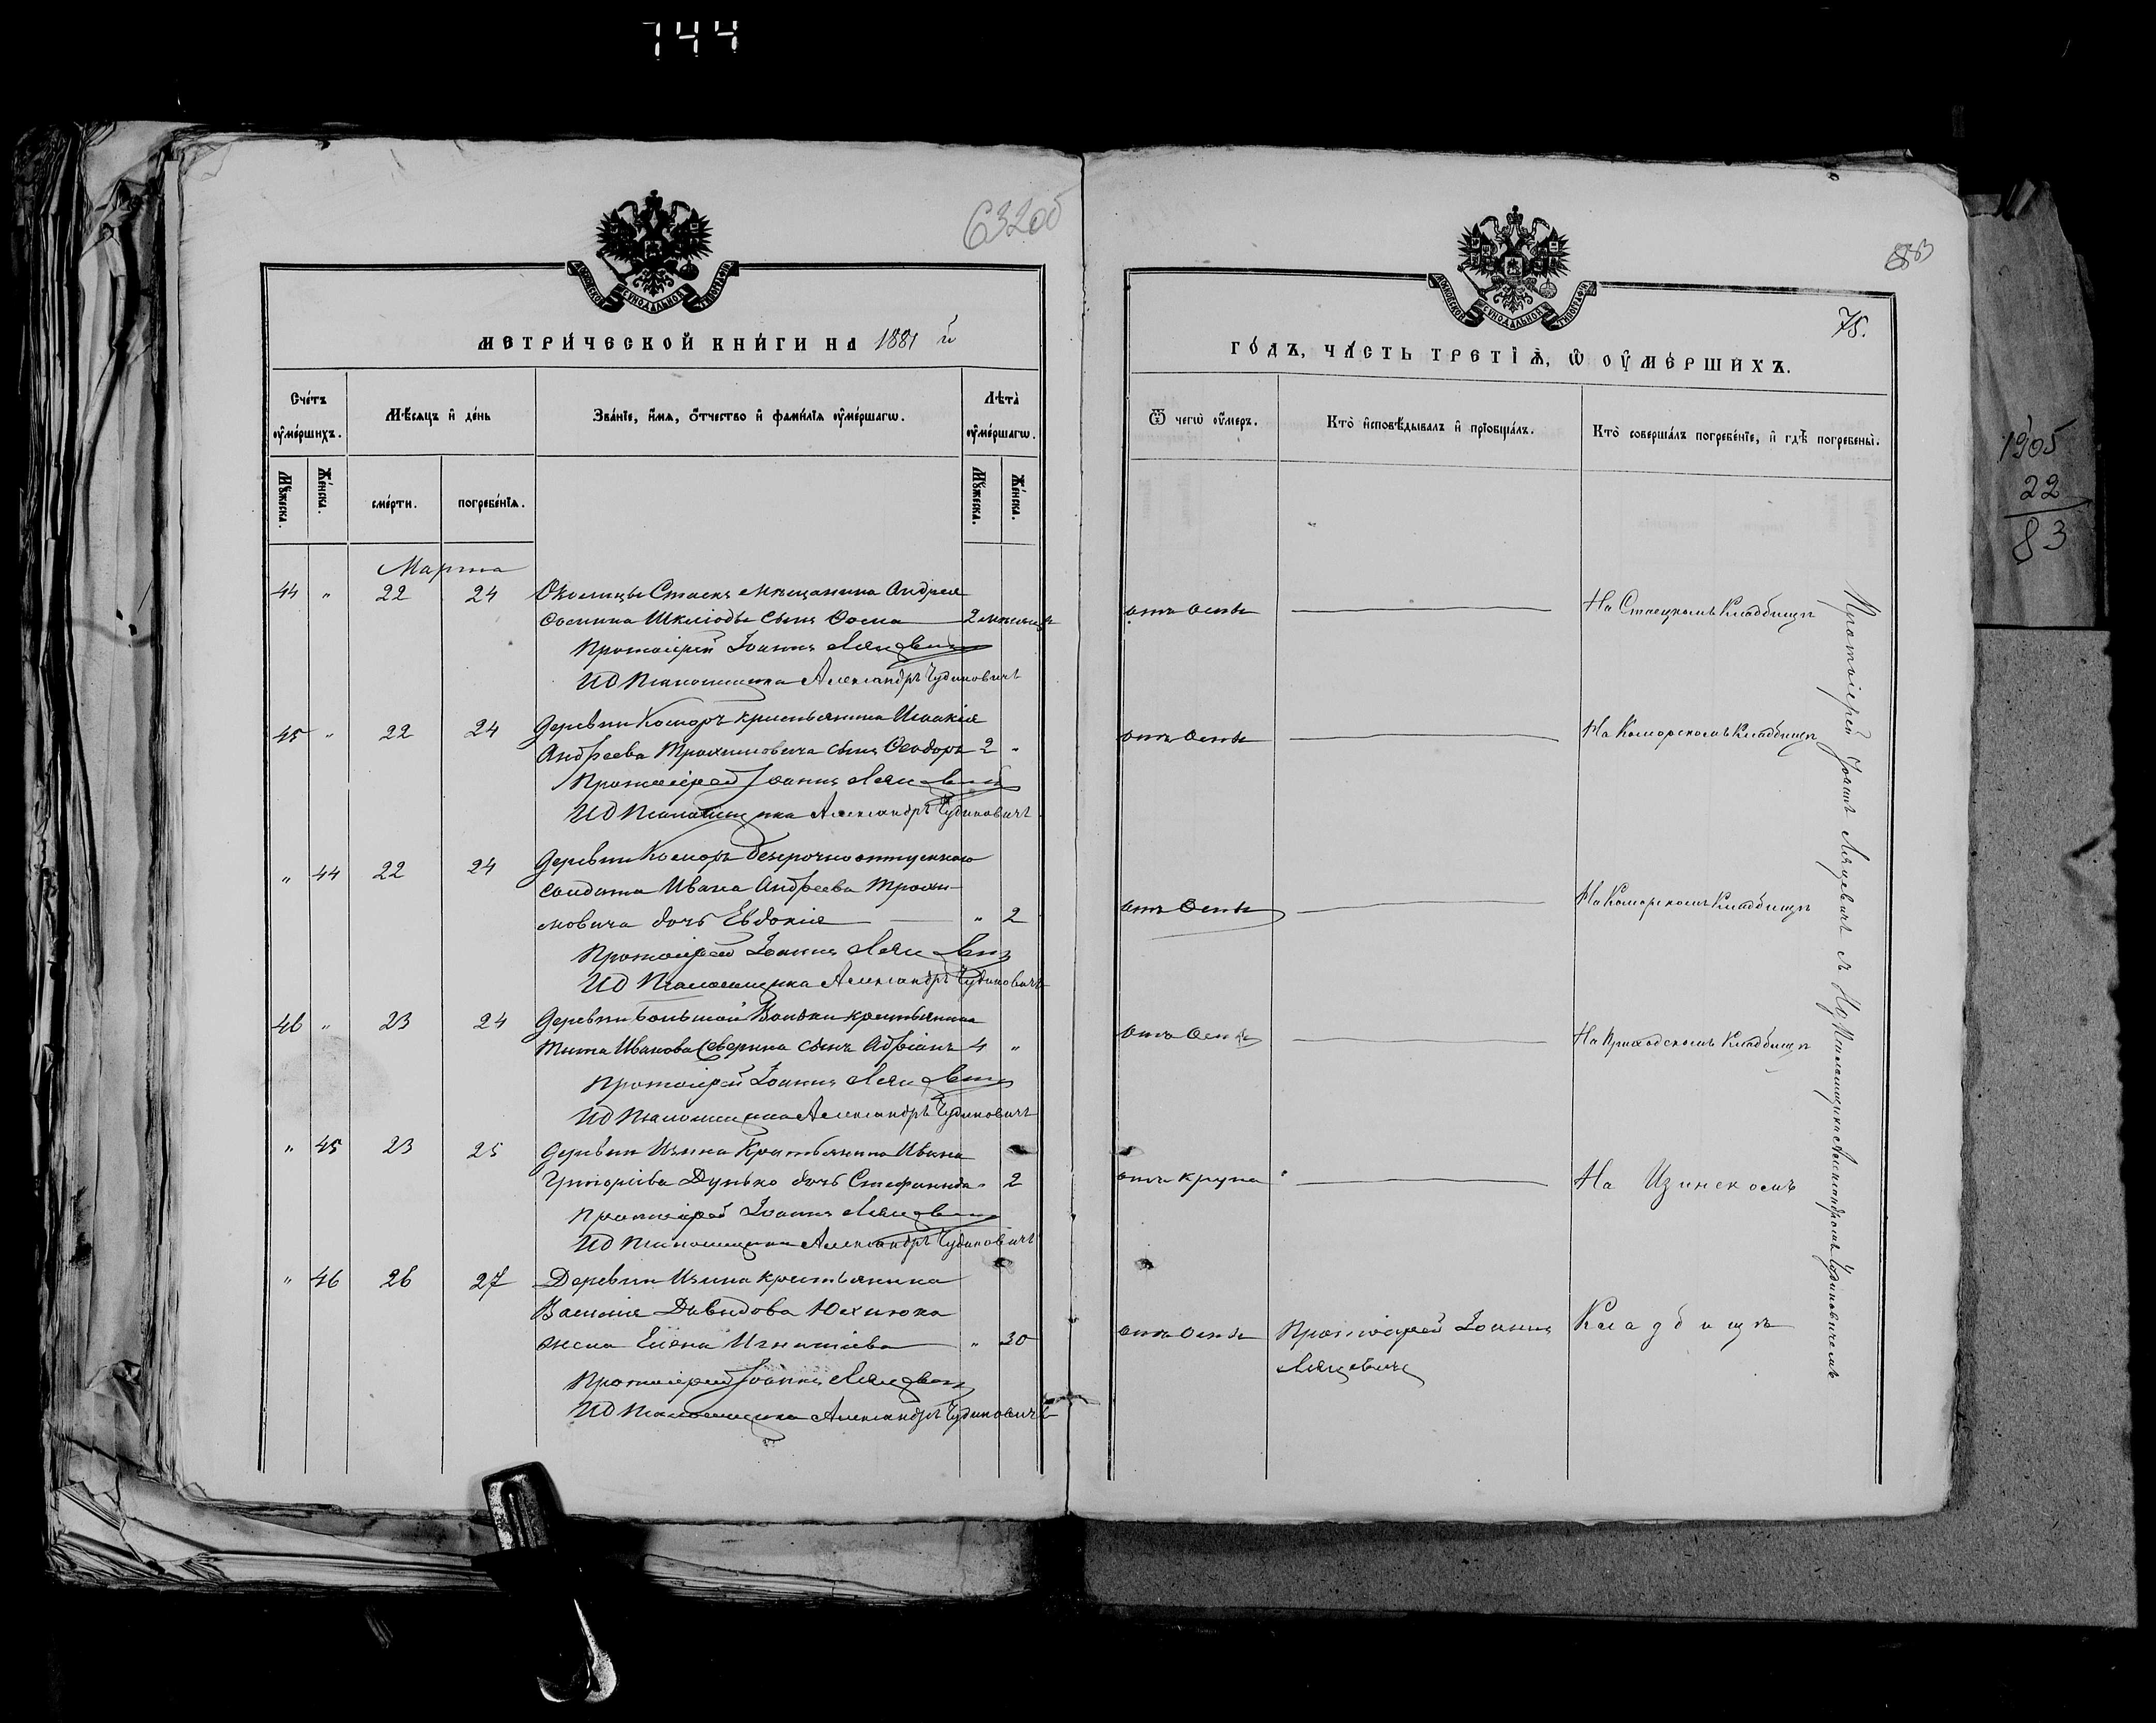 744
632об
МОСКОВСКОЙ СУНОДАЛЬНОЙ ТИПОГРАФІИ
МЕТРИ́ЧЕСКОЙ КНИ́ГИ НА 1881 й
Сче́тъ ᲂу҆ме́ршихъ.
Мѣ́сяцъ и҆ де́нь
Зва́нїе, и҆́мя, ѻ҆́тчество и҆ фамі́лїя ᲂу҆ме́ршагѡ.
Лѣта̀ ᲂу҆ме́ршагѡ.
Мꙋ́жеска.
Же́нска.
сме́рти.
погребе́нїя.
Мꙋ́жеска.
Же́нска.
Марта
44 " 22 24 Околицы Стаекъ мѣщанина Андрея
Фомина Шклюды сынъ Фома 2 мѣсяца
Протоіерей Іоаннъ Ляцевичъ
ИД Псаломщика Александръ Чудиновичъ
45 " 22 24 Деревни Коморъ крестьянина Исаакія
Андреева Трохимовича сынъ Ѳеодоръ 2 "
Протоіерей Іоаннъ Ляцевичъ
ИД Псаломщика Александръ Чудиновичъ
" 44 22 24 Деревни Коморъ безсрочноотпускнаго
солдата Ивана Андреева Трохи-
мовича дочь Евдокія " 2
Протоіерей Іоаннъ Ляцевичъ
ИД Псаломщика Александръ Чудиновичъ
46 " 23 24 Деревни Большой крестьянина
Тита Иванова Северина сынъ Адріанъ 4 "
Протоіерей Іоаннъ Ляцевичъ
ИД Псаломщика Александръ Чудиновичъ
" 45 23 25 Деревни Изина Крестьянина Ивана
Григорьева Дунько дочь Стефанида " 2
Протоіерей Іоаннъ Ляцевичъ
ИД Псаломщика Александръ Чудиновичъ
" 46 26 27 Деревни Изина крестьянина
Василія Давидова Юхнюка
жена Елена Игнатіева " 30
Протоіерей Іоаннъ Ляцевичъ
ИД Псаломщика Александръ Чудиновичъ
75.
МОСКОВСКОЙ СУНОДАЛЬНОЙ ТИПОГРАФІИ
ГО́ДЪ, ЧА́СТЬ ТРЕ́ТЇѦ, Ѡ҆ ОУ҆МЕ́РШИХЪ.
Ѿ чегѡ̀ ᲂу҆́меръ.
Кто̀ и҆сповѣ́дывалъ и҆ прїобща́лъ.
Кто̀ соверша́лъ погребе́нїе, и҆ гдѣ̀ погребены̀.
отъ оспы
На Стаецкомъ Кладбищѣ
отъ оспы
На Коморскомъ Кладбищѣ
отъ оспы
На Коморскомъ Кладбищѣ
отъ оспы
На Приходскомъ Кладбищѣ
отъ крупа
На Изинскомъ
отъ оспы
Протоіерей Іоаннъ
Ляцевичъ
Кладбищѣ
Протоіерей Іоаннъ Ляцевичъ съ ИД Псаломщика Александромъ Чудиновичемъ
1905
22
83